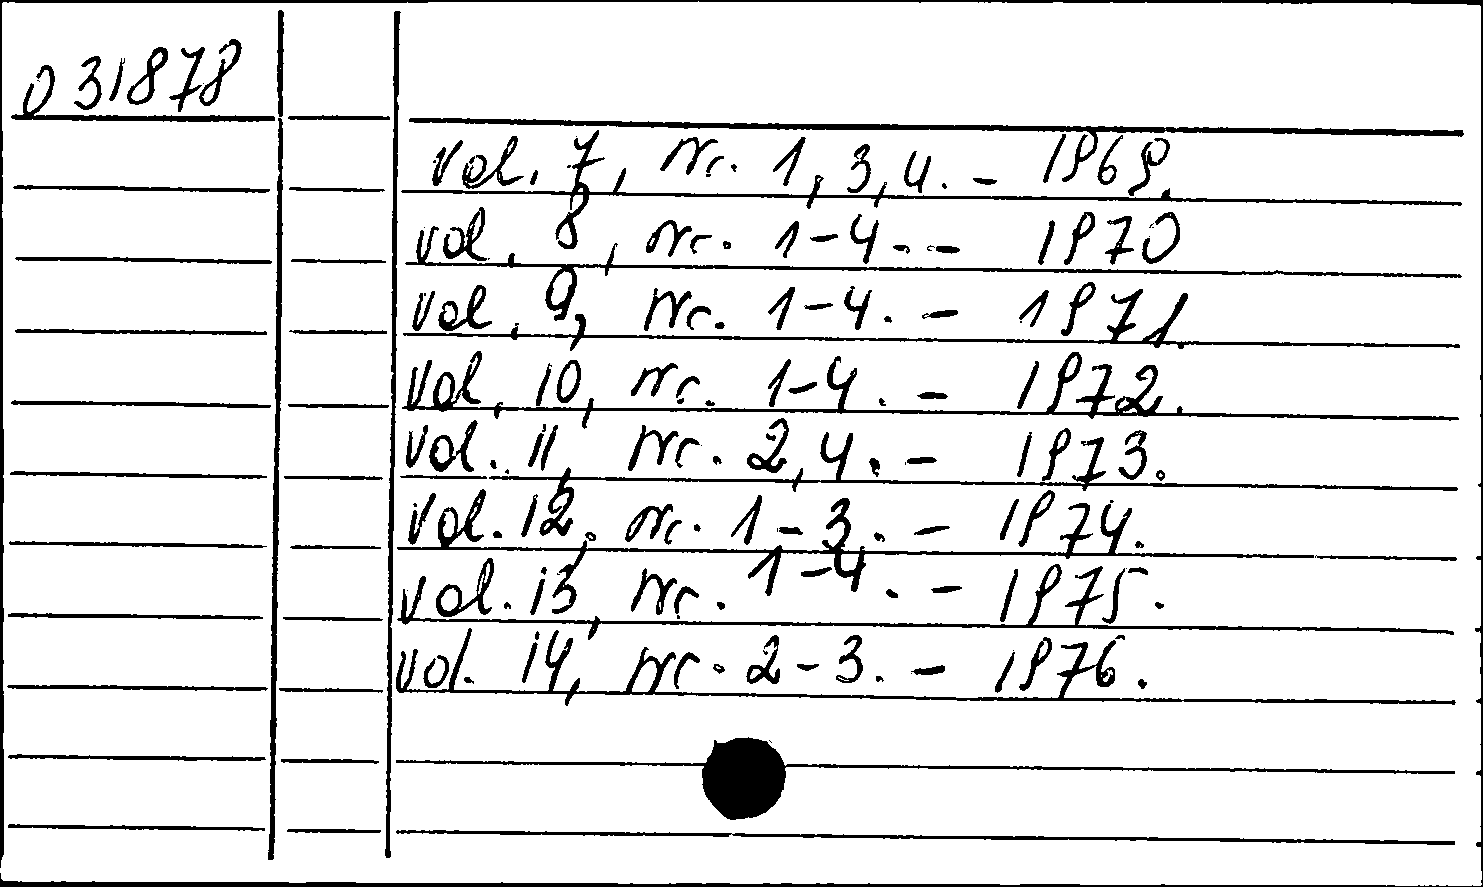 031878
vol. 7, nr. 1, 3, 4. - 1969.
vol. 8, nr. 1-4. - 1970
vol. 9, nr. 1-4. - 1971.
vol. 10, nr. 1-4. - 1972.
vol. 11, nr. 2, 4. - 1973.
vol. 12, nr. 1-3. - 1974.
vol. 13, nr. 1-4. - 1975.
vol. 14, nr. 2-3. - 1976.